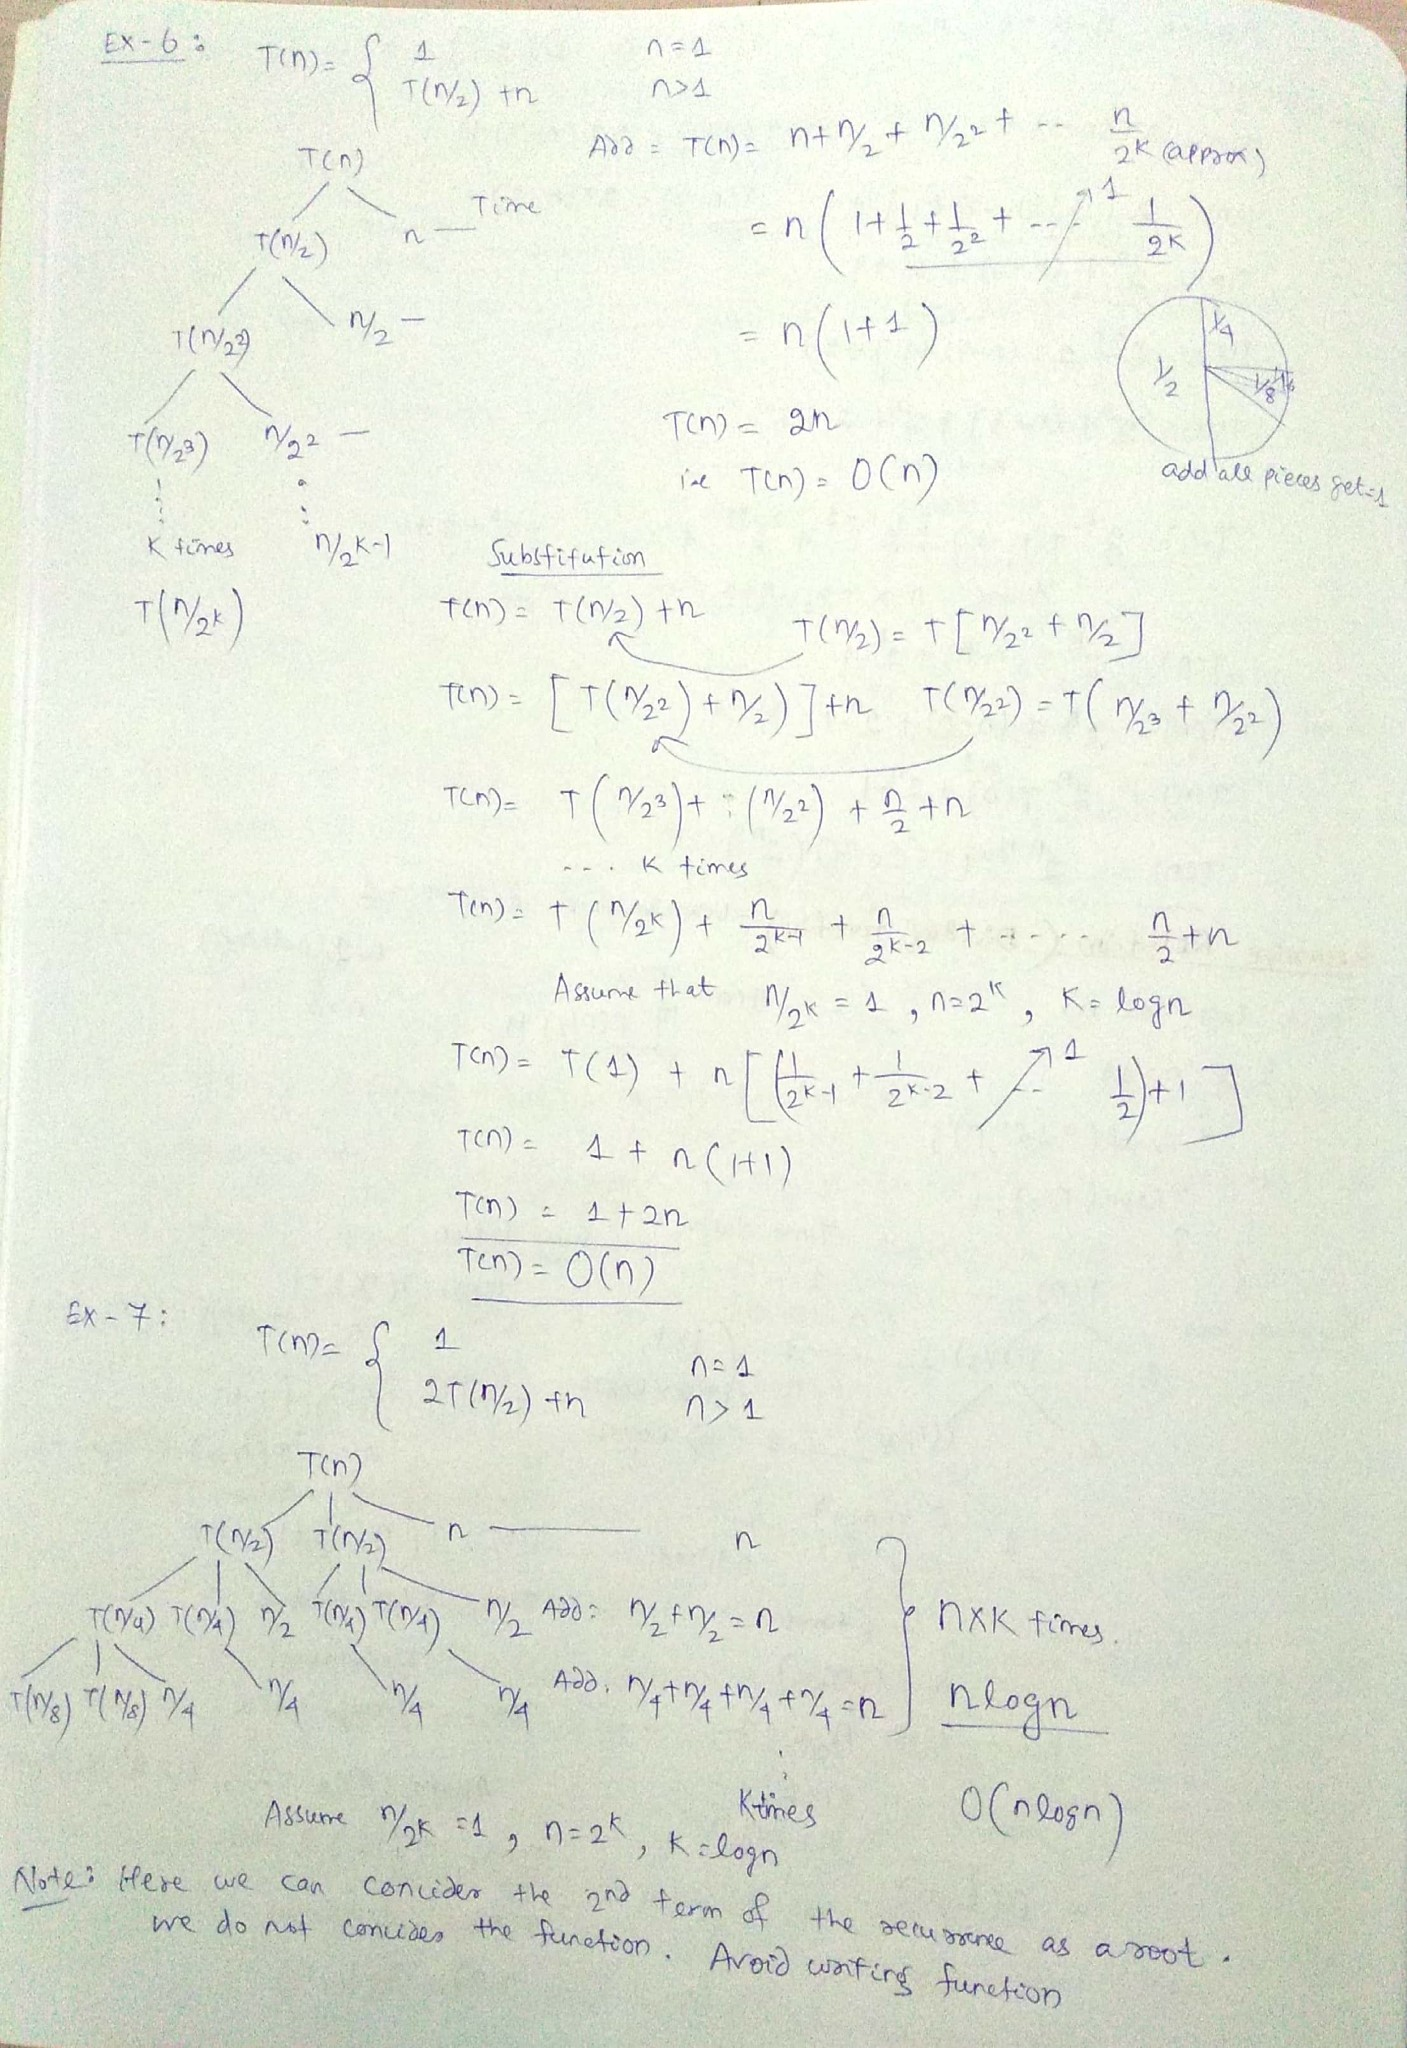 Ex-6: T(n) = { 1 n=1
T(n/2) + n n>1
T(n)
T(n/2) n — Time
T(n/2²) n/2 —
T(n/2³) n/2² —
K times n/2^K-1
T(n/2^K)
Add = T(n) = n + n/2 + n/2² + -- n/2^K (approx)
= n ( 1 + 1/2 + 1/2² + --- 1/2^K ) 1
= n (1+1)
T(n) = 2n
i.e T(n) = O(n)
1/2 1/4 1/8 1/16
add all pieces get=1
Substitution
T(n) = T(n/2) + n T(n/2) = T[n/2² + n/2]
T(n) = [T(n/2²) + n/2)] + n T(n/2²) = T(n/2³ + n/2²)
T(n) = T(n/2³) + (n/2²) + n/2 + n
... K times
T(n) = T(n/2^K) + n/2^K-1 + n/2^K-2 + ----- n/2 + n
Assume that n/2^K = 1, n=2^K, K = logn
T(n) = T(1) + n[(1/2^K-1 + 1/2^K-2 + -- 1/2) + 1] 1
T(n) = 1 + n(1+1)
T(n) = 1 + 2n
T(n) = O(n)
Ex-7: T(n) = { 1 n=1
2T(n/2) + n n>1
T(n)
T(n/2) T(n/2) n ——— n
T(n/4) T(n/4) n/2 T(n/4) T(n/4) n/2 Add: n/2 + n/2 = n
T(n/8) T(n/8) n/4 n/4 n/4 n/4 Add: n/4 + n/4 + n/4 + n/4 = n
} nxK times.
nlogn
K times O(nlogn)
Assume n/2^K = 1, n=2^K, K = logn
Note: Here we can concider the 2nd term of the recurrence as a root.
we do not concider the function. Avoid writing function